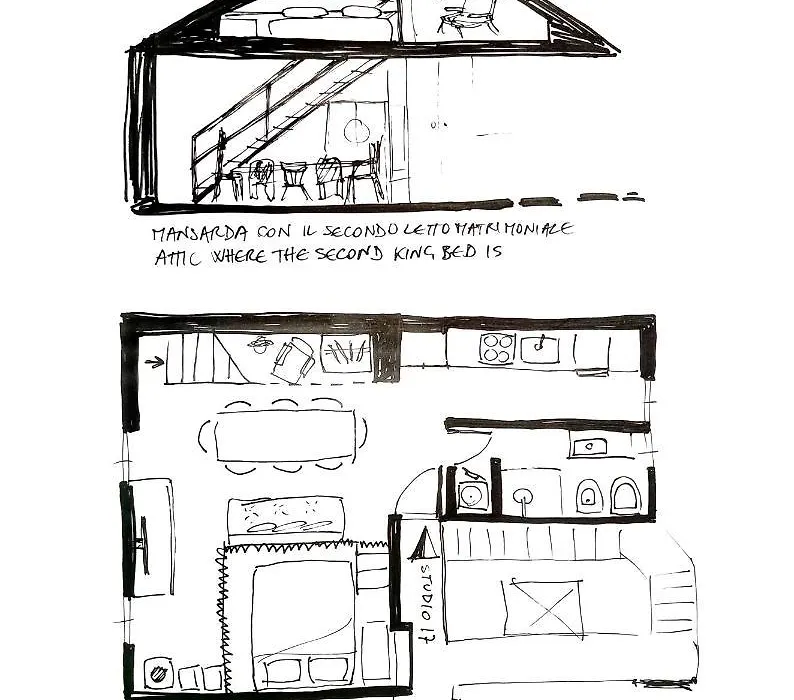 MANSARDA CON IL SECONDO LETTO MATRIMONIALE
ATTIC WHERE THE SECOND KING BED IS
STUDIO 17